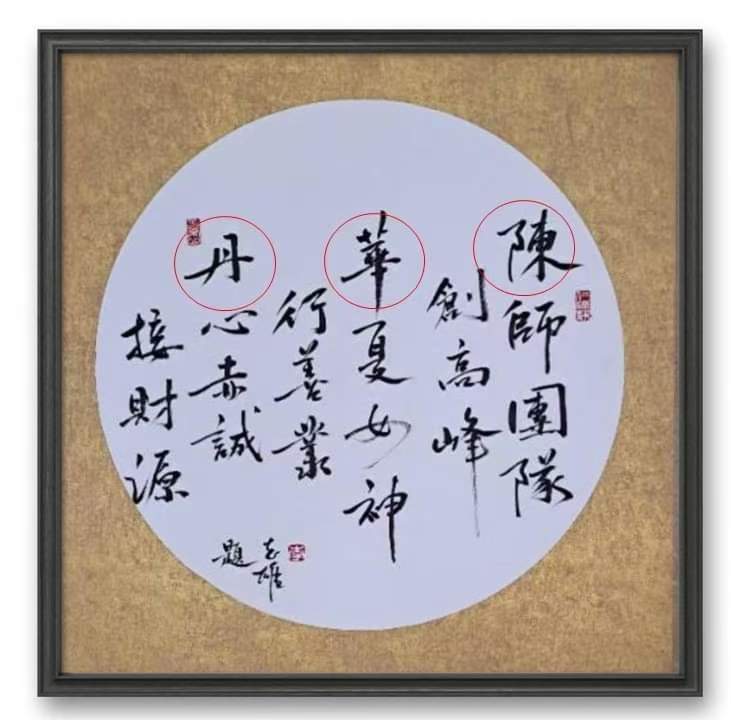 陳師團隊
創高峰
華夏女神
行善業
丹心赤誠
接財源
志雄
題